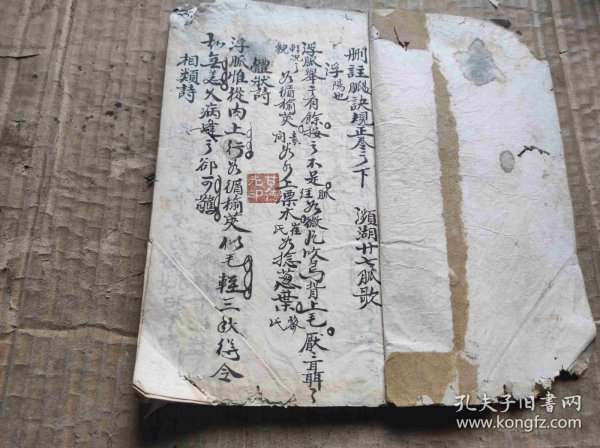 刪註脈訣規正卷之下
瀕湖廿七脈歌
浮 陽也
浮脈舉之有餘按之不足 脈經 如微風吹鳥背上毛厭厭聶聶
輕汎貌 如循榆莢 素問 如水上漂木 崔氏 如捻葱葉 黎氏
體狀詩
浮脈惟從肉上行如循榆莢似毛輕三秋得令
知無恙久病逢之卻可驚
相類詩
孔夫子旧书网